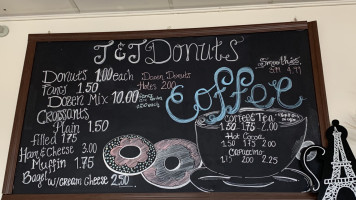 T&T Donuts
Donuts 1.00 each
Fancy 1.50
Dozen Mix 10.00
Croissants
Plain 1.50
filled 1.75
Ham & Cheese 3.00
Muffin 1.75
Bagel w/cream Cheese 2.50
Dozen Donuts
Holes 2.00
Coffee
Smoothies
Coffee Tea
1.50 1.75 2.00
Hot Cocoa
1.50 1.75 2.00
Capuccino
1.75 2.00 2.25